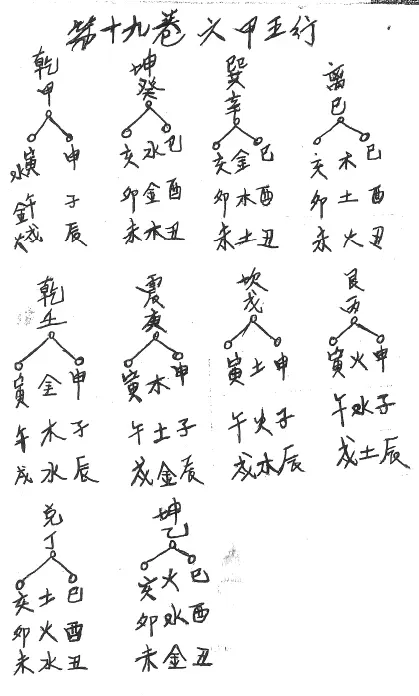 第十九卷 六甲五行
乾 坤 巽 离
甲 癸 辛 己
水寅 申 亥水巳 亥金巳 亥木巳
金午 子 卯金酉 卯木酉 卯土酉
火戌 辰 未木丑 未土丑 未火丑
乾 震 坎 艮
壬 庚 戊 丙
寅金申 寅木申 寅土申 寅火申
午木子 午土子 午火子 午水子
戌水辰 戌金辰 戌木辰 戌土辰
兑 坤
丁 乙
亥土巳 亥火巳
卯火酉 卯水酉
未水丑 未金丑